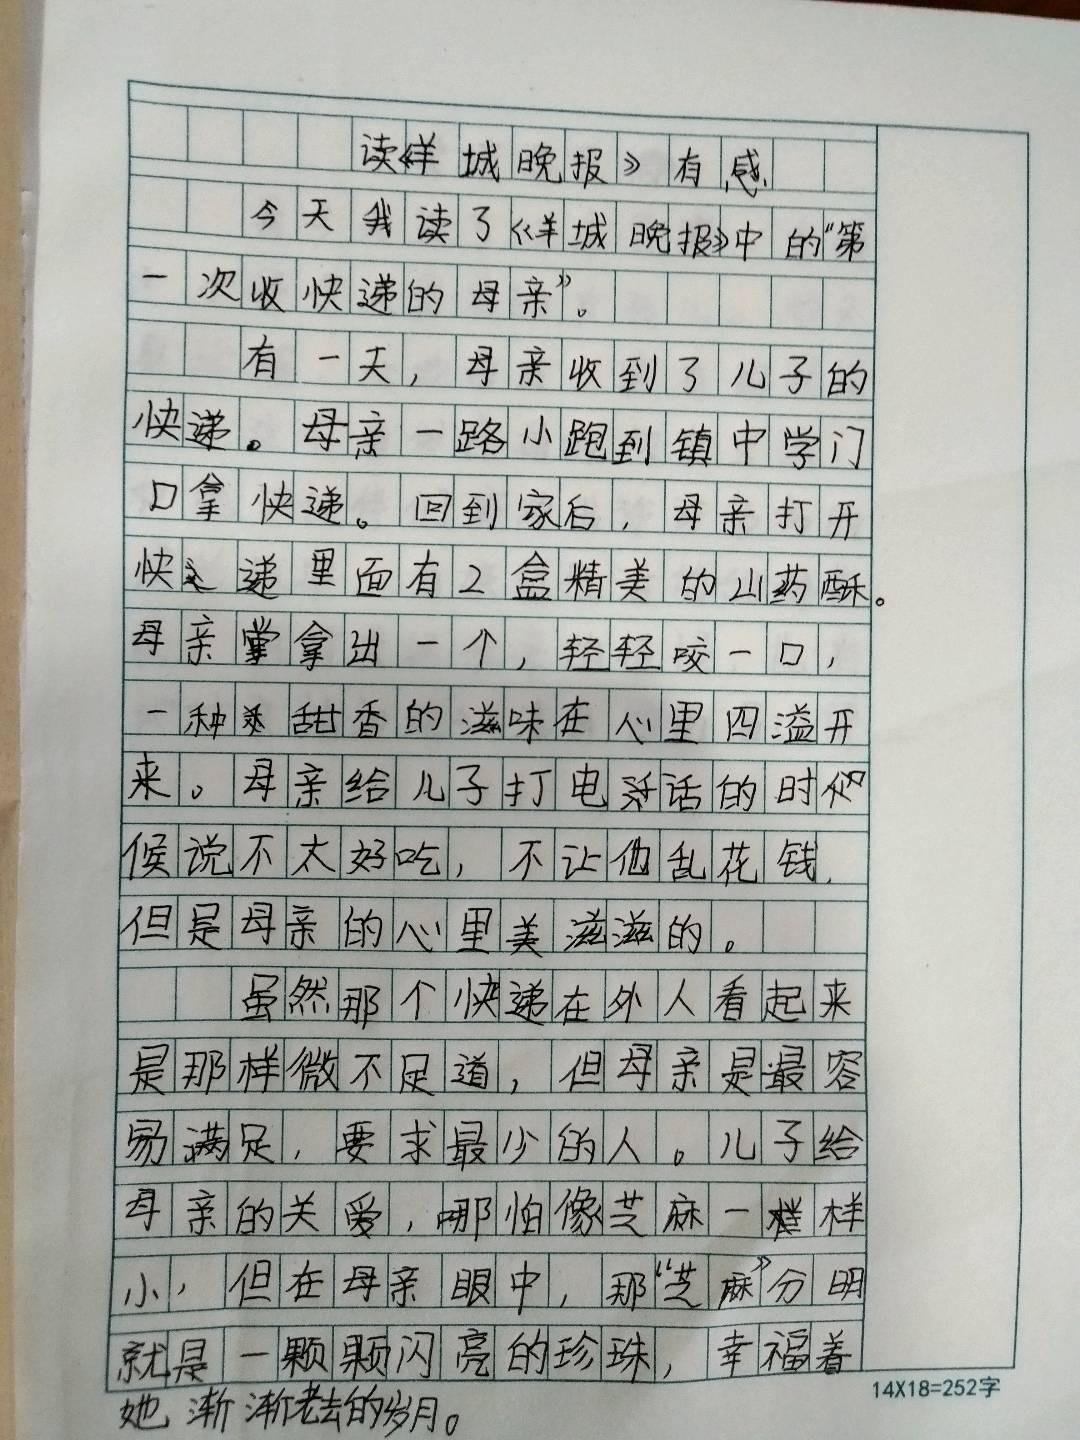 读《羊城晚报》有感
今天我读了《羊城晚报》中的“第
一次收快递的母亲”。
有一天，母亲收到了儿子的
快递。母亲一路小跑到镇中学门
口拿快递。回到家后，母亲打开
快递里面有2盒精美的山药酥。
母亲拿出一个，轻轻咬一口，
一种甜香的滋味在心里四溢开
来。母亲给儿子打电话的时
候说不太好吃，不让他乱花钱，
但是母亲的心里美滋滋的。
虽然那个快递在外人看起来
是那样微不足道，但母亲是最容
易满足，要求最少的人。儿子给
母亲的关爱，哪怕像芝麻一样
小，但在母亲眼中，那“芝麻”分明
就是一颗颗闪亮的珍珠，幸福着
她渐渐老去的岁月。
14X18=252字